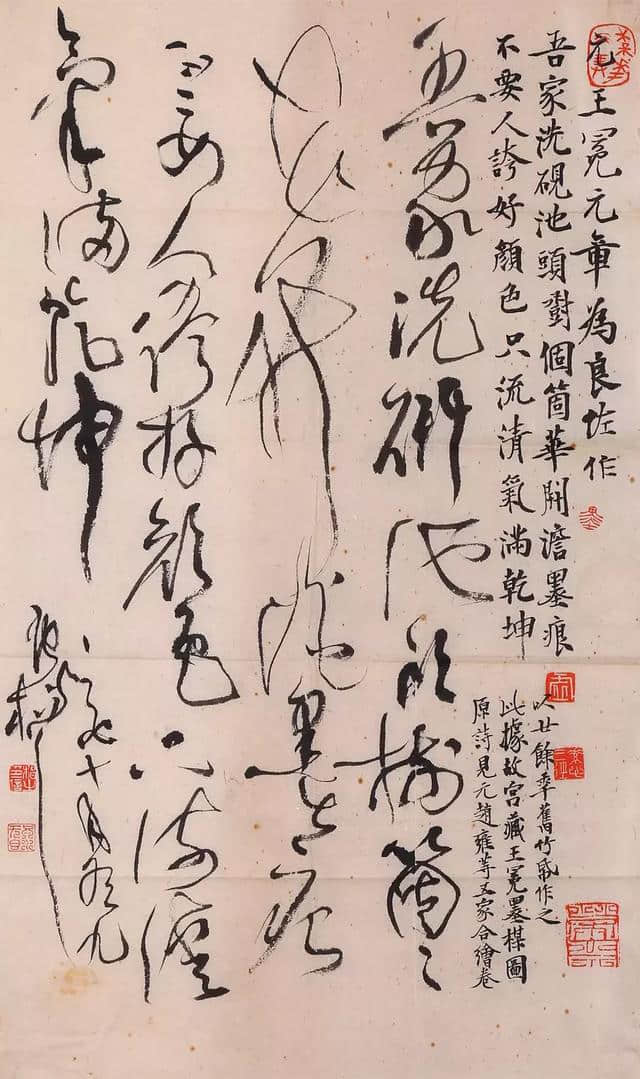 元王冕元章為良佐作
吾家洗硯池頭對個箇華開澹墨痕
不要人誇好顏色只流清氣滿乾坤
以廿餘年舊竹紙作之
此據故宮藏王冕墨楳圖
原詩見元趙雍等五家合繪卷
吾家洗研池頭樹箇々
花開澹墨痕
不要人誇好顏色只流清
氣滿乾坤